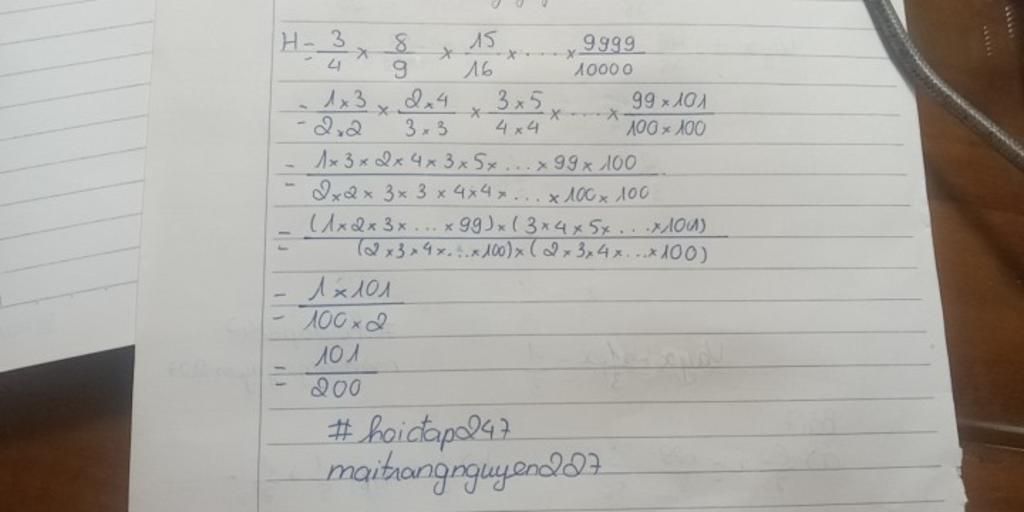 H = 3/4 × 8/9 × 15/16 × ... × 9999/10000
= 1×3/2×2 × 2×4/3×3 × 3×5/4×4 × ... × 99×101/100×100
= 1×3×2×4×3×5×...×99×100/2×2×3×3×4×4×...×100×100
= (1×2×3×...×99)×(3×4×5×...×101)/(2×3×4×...×100)×(2×3×4×...×100)
= 1×101/100×2
= 101/200
# hoictap247
maitrangnguyen207